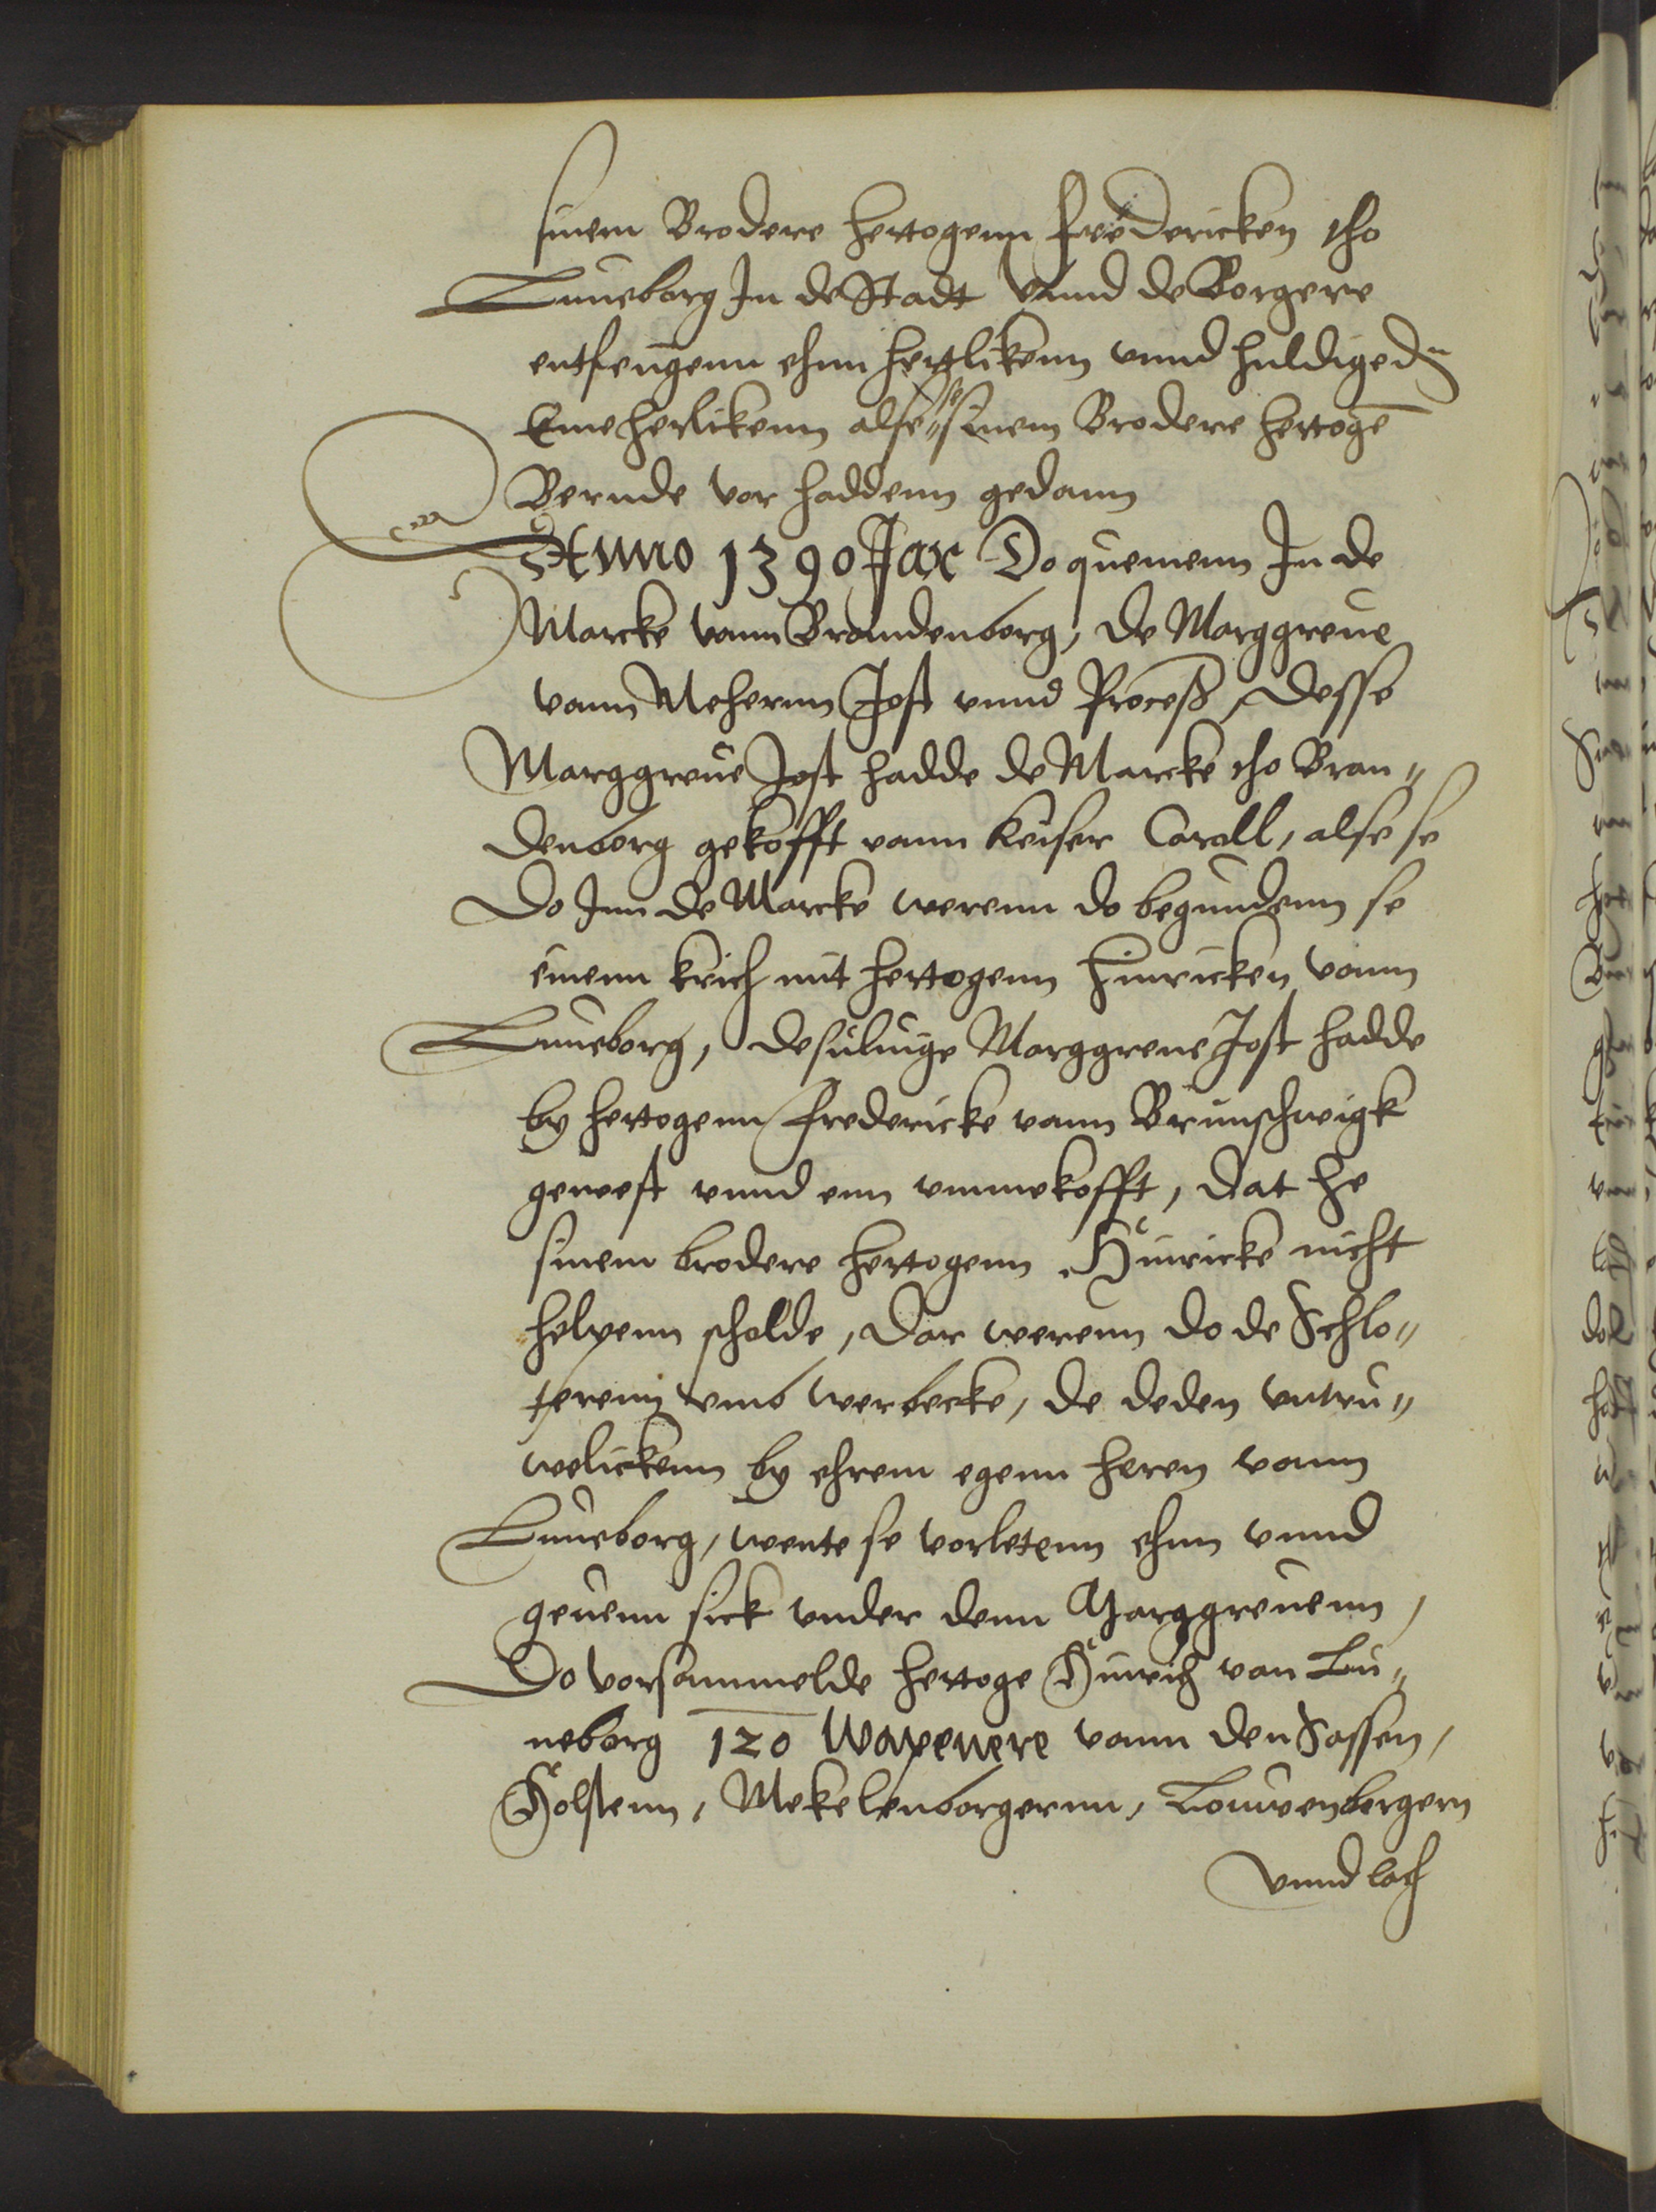 sinem Brodere hertogenn Frederickenn tho
Luneborg In de Stadt vnnd de Borgere
entfengenn ehnn hertlikenn vnnd huldigedn
Eme herlikenn alse se sinem Brodere hertogē
Bernde vor haddenn gedann
Anno 1390 Jar Do quemenn In de
Marcke vann Brandenborg, de Marggreue
vann Mehernn Jost vnnd Proceß, Desse
Marggreue Jost hadde de Marcke tho Bran„
denborg gekofft vann Keiser Caroll, alse se
Do Inn de Marcke werenn do begundenn se
einenn krich mit hertogenn Hinricken vann
Luneborg, desuluige Marggreue Jost hadde
by hertogenn Frederickе vann Brunschwigk
gewest vnnd enn vmmekofft, dat he
sinem brodere hertogenn Hinricke nicht
helpenn scholde, Dar werenn do de Schlo„
terenn vnnd Werbecke, de deden vntru„
welickenn by ehrem egenn heren vann
Luneborg, wente se vorletenn ehnn vnnd
geuenn sick vnder denn Marggreuenn,
Do vorsammelde hertoge Hinrich van Lu„
neborg 120 Wapenere vann den Sassen,
Holstenn, Mekelenborgernn, Louwenbergern
vnnd loch